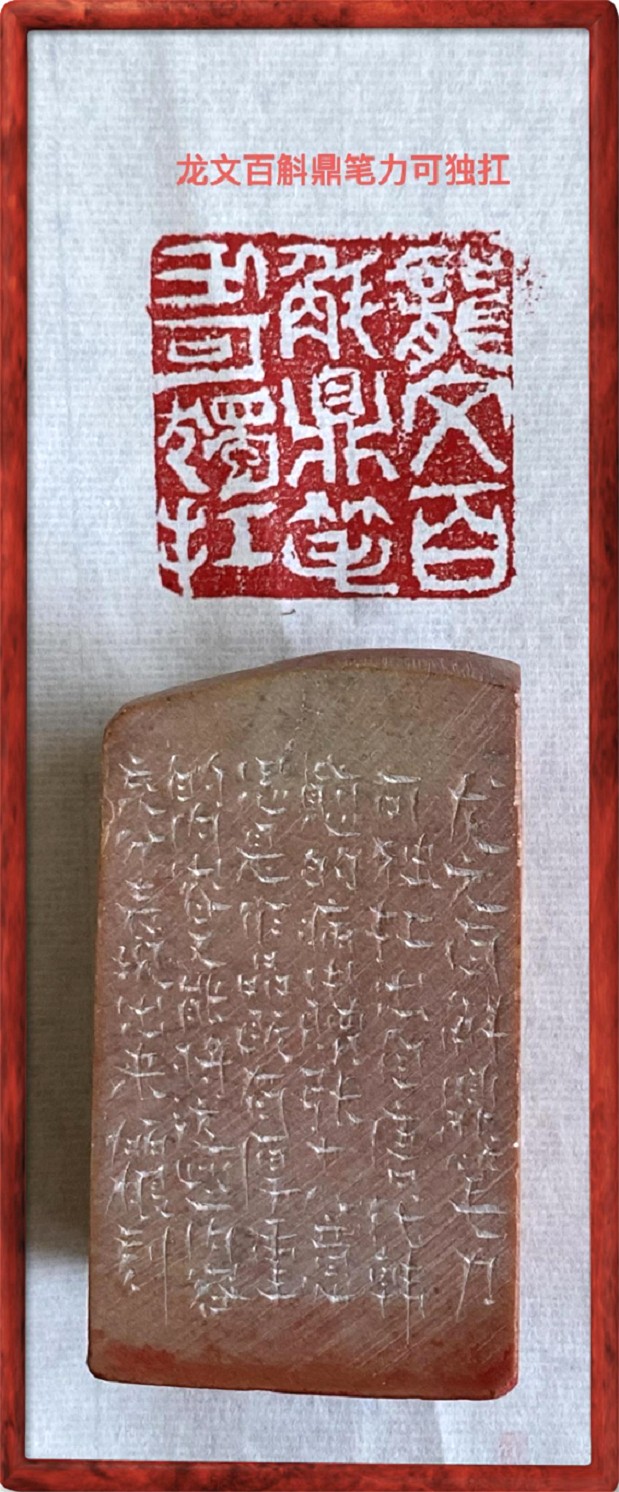 龙文百斛鼎笔力可独扛
龍文百
斛鼎笔
力可獨扛
龙文百斛鼎笔力
可独扛出自唐代韩
愈的病中赠张十八意
思是作品既有厚重
的内容又能将这些内容
充分表现出来 刻